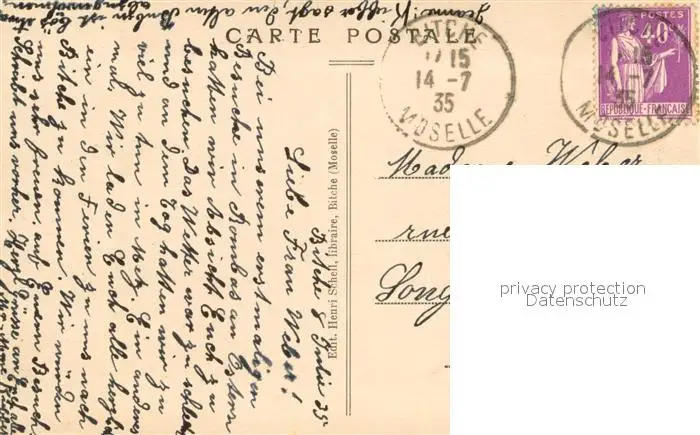 CARTE POSTALE
BITCHE
17 15
14 -7
35
MOSELLE
POSTES
40c
REPUBLIQUE-FRANÇAISE
15
14 -7
35
MOSELLE
Edit. Henri Schell, libraire, Bitche (Moselle)
Madame Weber
rue
Long
privacy protection
Datenschutz
Bitche 8 Julie 35
Liebe Frau Weber!
Bei unserem erstmaligen
Besuche in Rombas an Ostern
hatten wir Absicht Euch zu
besuchen. Das Wetter war zu schlecht
und an dem Tag hatten wir zu
viel zu tun in Metz. Ein anderes
mal. Wir laden Euch alle herzlich
ein in den Ferien zu uns nach
Bitche zu kommen. Wir würden
uns sehr freuen, auf Euern Besuch.
Schreibt uns vorher. Herzl. Grüsse an Euch alle
Jeanne: Kieffer sagt, den alten